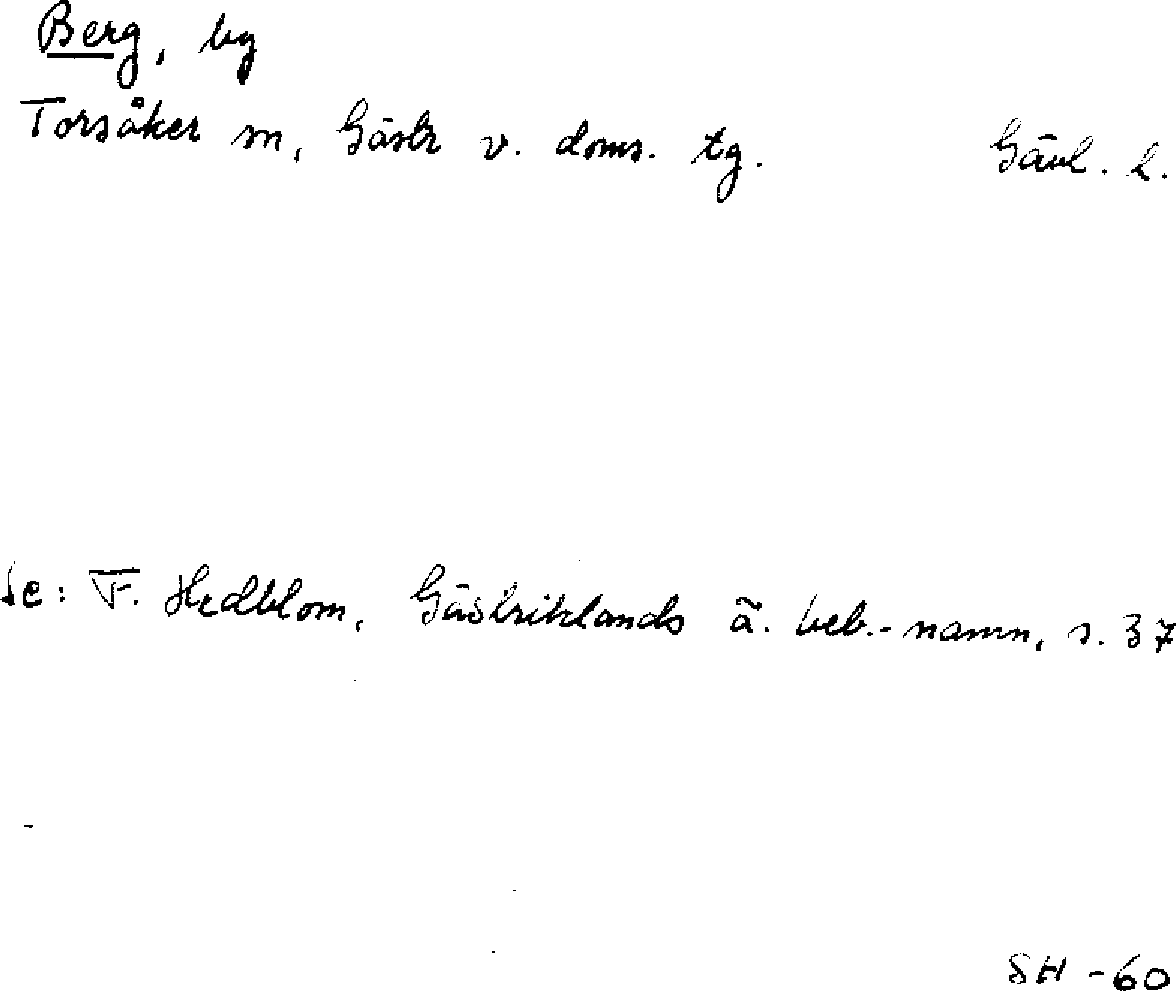 Berg, by
Torsåker sn, Gästr v. doms. tg. Gävl. l.
Se: F. Hedblom, Gästriklands ä. beb.-namn, s. 37
SH -60